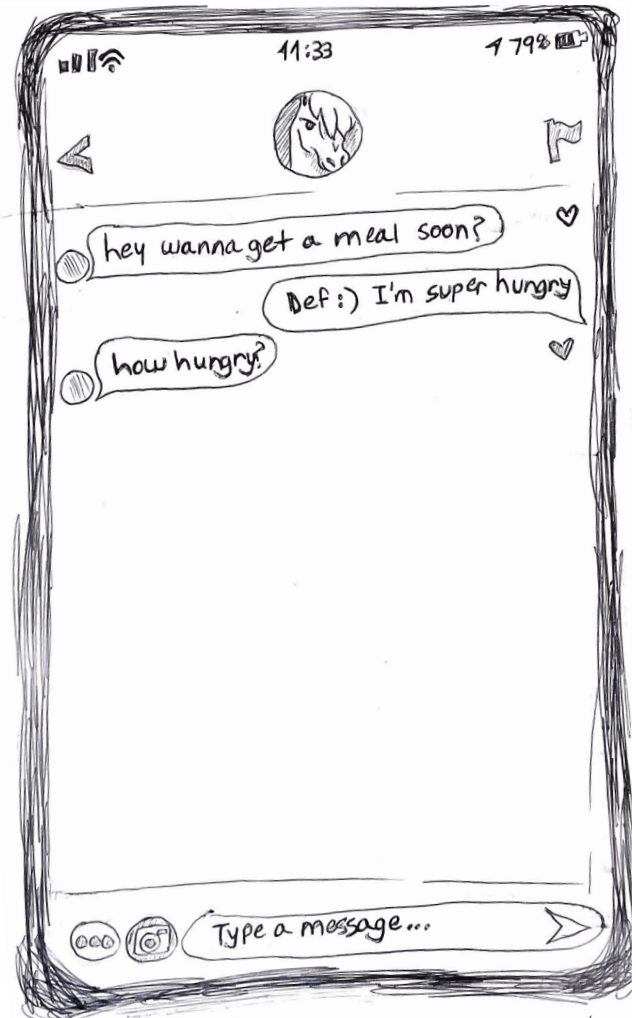 11:33
79%
hey wanna get a meal soon?
Def :) I'm super hungry
how hungry?
Type a message...